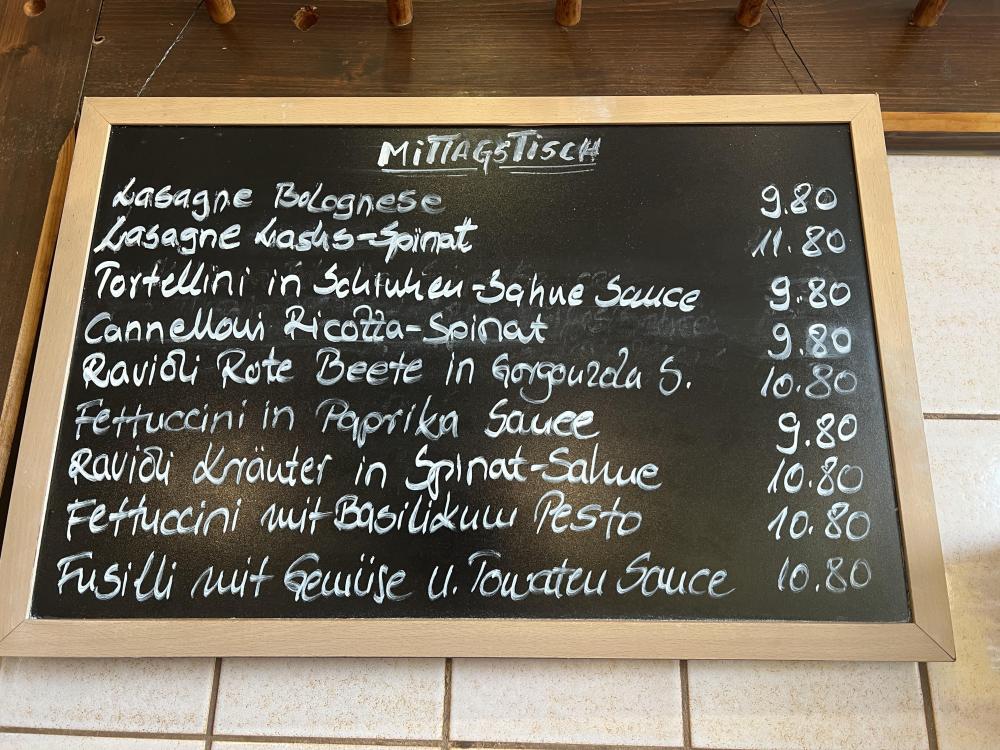 MITTAGSTISCH
Lasagne Bolognese 9.80
Lasagne Lachs-Spinat 11.80
Tortellini in Schinken-Sahne Sauce 9.80
Cannelloni Ricotta-Spinat 9.80
Ravioli Rote Beete in Gorgonzola S. 10.80
Fettuccini in Paprika Sauce 9.80
Ravioli Kräuter in Spinat-Sahne 10.80
Fettuccini mit Basilikum Pesto 10.80
Fusilli mit Gemüse u. Tomaten Sauce 10.80